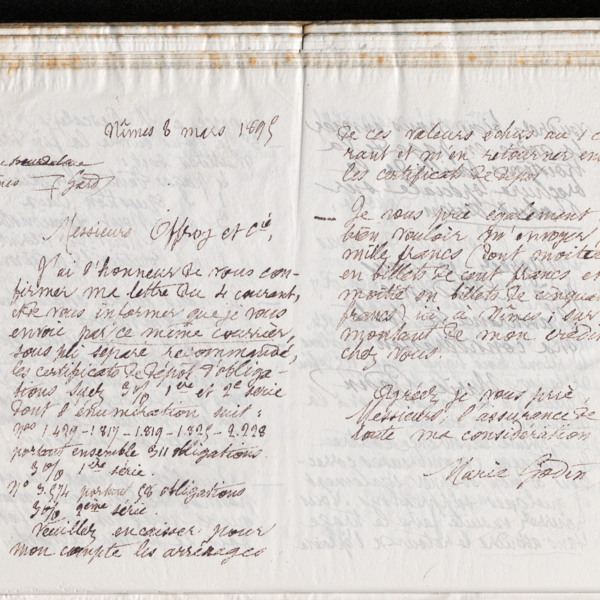 Nîmes 8 mars 1895
Gard
Messieurs Offroy et Cie,
J'ai l'honneur de vous con-
firmer ma lettre du 4 courant,
et de vous informer que je vous
envoie par ce même courrier,
sous pli séparé recommandé,
les certificats de dépôt d'obliga-
tions Suez 3% 1ère et 2e série
dont l'énumération suit :
nos 1.429-1.817-1.819-1.825-2.228
portant ensemble 311 obligations
3% 1ère série.
no 3.574 portant 58 obligations
3% 2ème série.
Veuillez encaisser pour
mon compte les arrérages
de ces valeurs échus au 1 c
rant et m'en retourner en
les certificats de dépôt
Je vous prie également
bien vouloir m'envoyer
mille francs (dont moitié
en billets de cent francs et
moitié en billets de cinquan
francs) ici à Nîmes ; sur
montant de mon crédit
chez vous.
Agréez, je vous prie,
Messieurs, l'assurance de
toute ma considération
Marie Godin